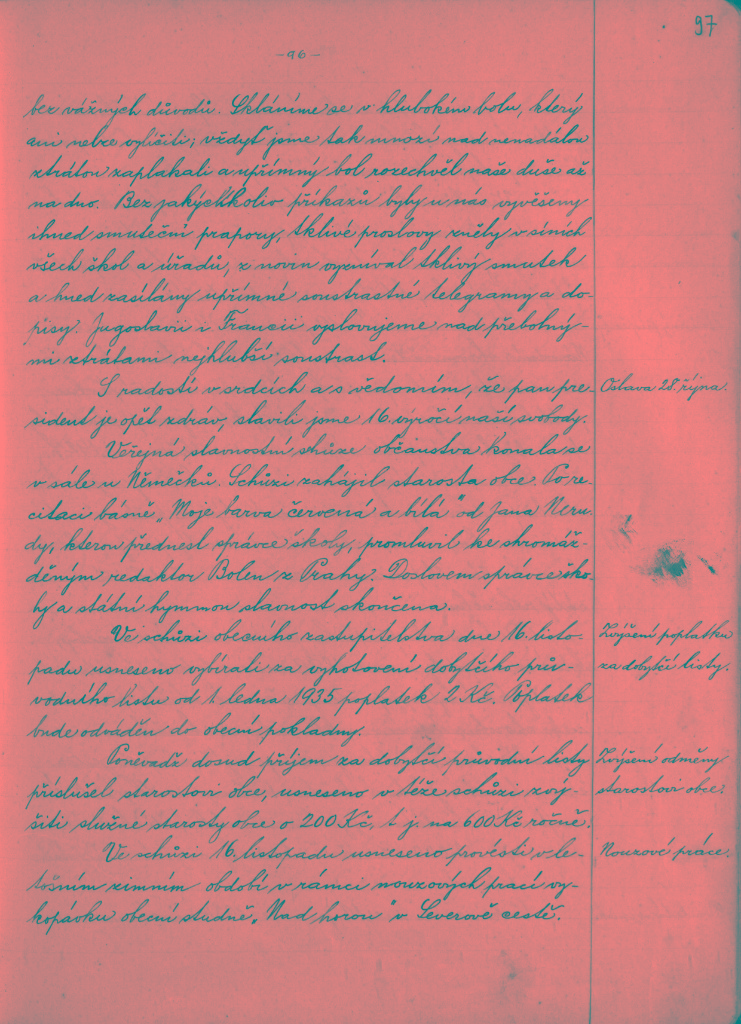 97
-96-
bez vážných důvodů. Skláníme se v hlubokém bolu, který
ani nelze vylíčiti; vždyť jsme tak mnozí nad nenadálou
ztrátou zaplakali a upřímný bol rozechvěl naše duše až
na dno. Bez jakýchkoliv příkazů byly u nás vyvěšeny
ihned smuteční prapory, tklivé proslovy zněly v síních
všech škol a úřadů, z novin vyzníval tklivý smutek
a hned zasílány upřímné soustrastné telegramy a do-
pisy. Jugoslavii i Francii vyslovujeme nad přebolný-
mi ztrátami nejhlubší soustrast.
S radostí v srdcích a s vědomím, že pan pre-
Oslava 28. října.
sident je opět zdráv, slavili jsme 16. výročí naší svobody.
Veřejná slavnostní schůze občanstva konala se
v sále u Němečků. Schůzi zahájil starosta obce. Po re-
citaci básně „Moje barva červená a bílá" od Jana Neru-
dy, kterou přednesl správce školy, promluvil ke shromáž-
děným redaktor Bolen z Prahy. Doslovem správce ško-
ly a státní hymnou slavnost skončena.
Ve schůzi obecního zastupitelstva dne 16. listo-
Zvýšení poplatku
padu usneseno vybírati za vyhotovení dobytčího prův-
za dobytčí listy.
vodního listu od 1 ledna 1935 poplatek 2 Kč. Poplatek
bude odváděn do obecní pokladny.
Poněvadž dosud příjem za dobytčí průvodní listy
Zvýšení odměny
příslušel starostovi obce, usneseno v téže schůzi zvý-
starostovi obce.
šiti služné starosty obce o 200 Kč, t. j. na 600 Kč ročně.
Ve schůzi 16. listopadu usneseno provésti v le-
Nouzové práce.
tošním zimním období v rámci nouzových prací vy-
kopávku obecní studně „Nad horou" v Severově cestě.